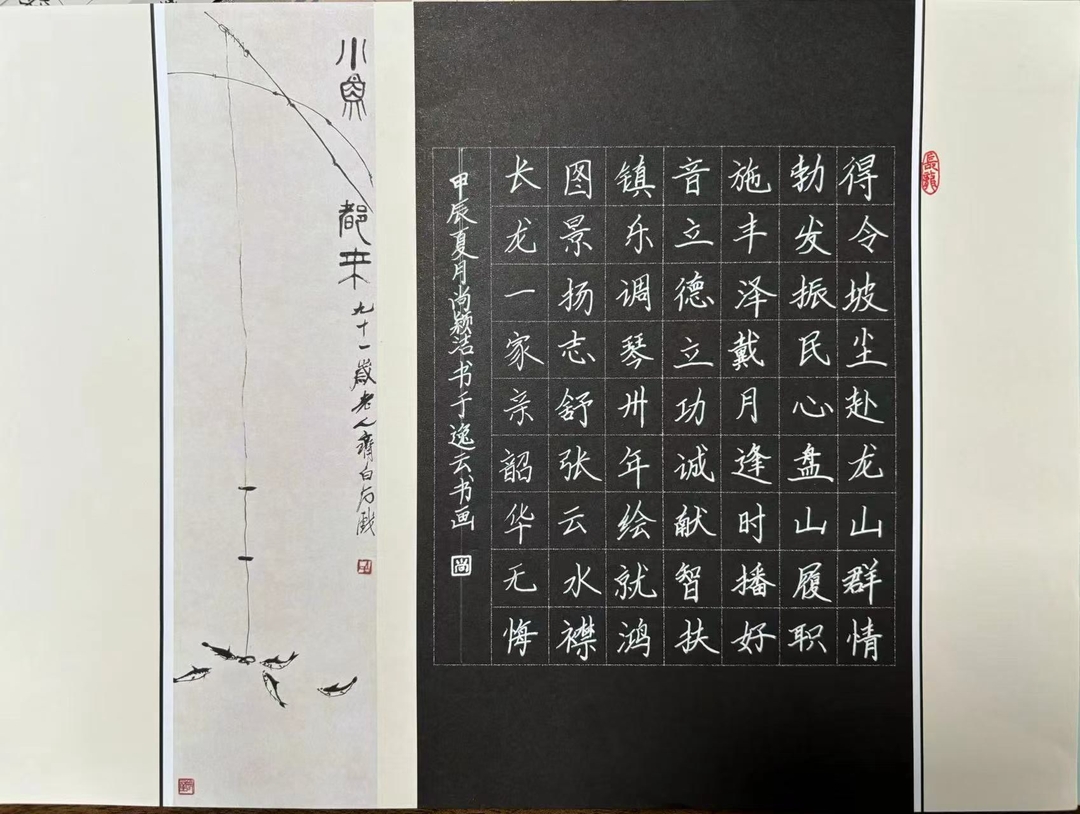 長龍
得令坡尘赴龙山群情
勃发振民心盘山履职
施丰泽戴月逢时播好
音立德立功诚献智扶
镇乐调琴卅年绘就鸿
图景扬志舒张云水襟
长龙一家亲韶华无悔
甲辰夏月尚颖洁书于逸云书画
尚
小魚都来
九十一歲老人齊白石戲